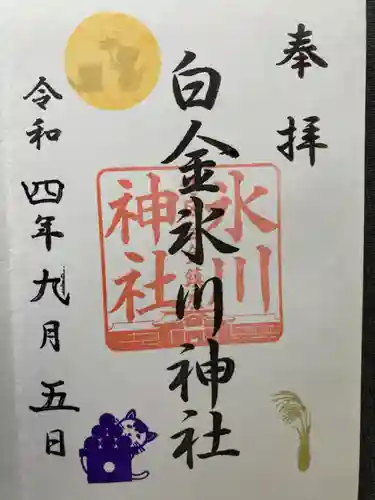 奉拝
白金氷川神社
氷川
神社
令和四年九月五日